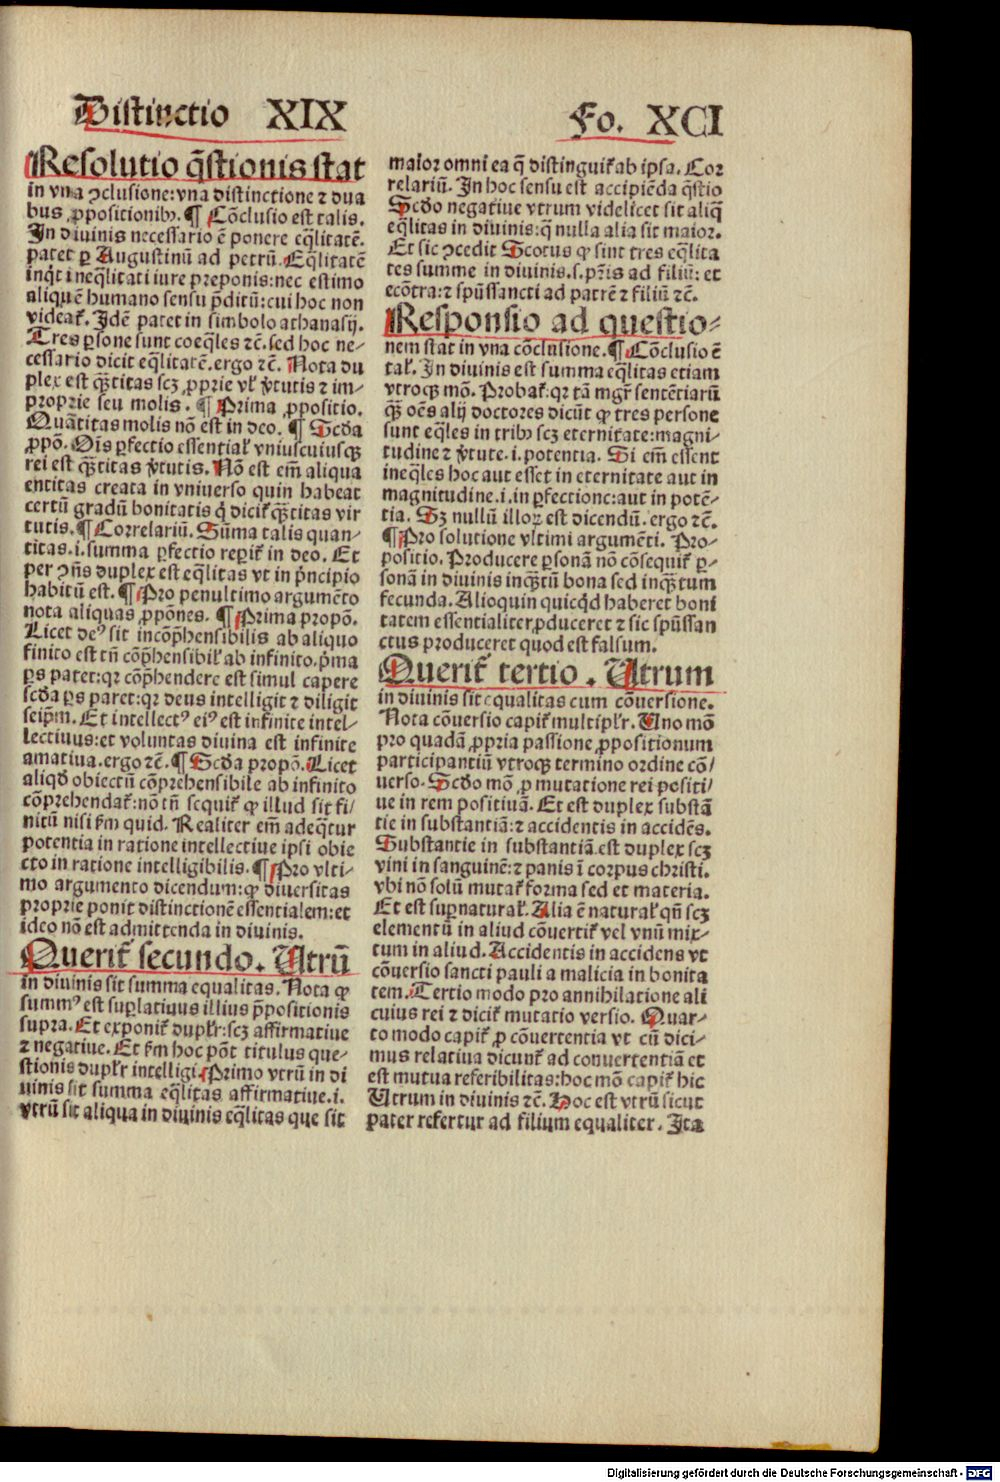 Distinctio XIX
Fo. XCI
Resolutio q̄stionis stat
in vna ꝯclusione: vna distinctione ⁊ dua
bus ꝓpositionibꝰ. ¶ Cōclusio est talis.
In diuinis necessario ē ponere eq̄litatē.
patet ꝑ Augustinū ad petrū. Eq̄litatē
inq̇t ineq̄litati iure preponis: nec estimo
aliquē humano sensu p̄ditū: cui hoc non
videat᷑. Idē patet in simbolo athanasij.
Tres ꝑsone sunt coeq̄les ⁊c̄. sed hoc ne⸗
cessario dicit eq̄litatē. ergo ⁊c̄. Nota du
plex est q̄ꝫtitas scꝫ ꝓprie vl̓ v̓tutis ⁊ im⸗
proprie seu molis. ¶ Prima ꝓpositio.
Quātitas molis nō est in deo. ¶ Scd̓a
ꝓpō. Oīs ꝑfectio essential̓ vniuscuiusqꝫ
rei est q̄ꝫtitas v̓tutis. Nō est em̄ aliqua
entitas creata in vniuerso quin habeat
certū gradū bonitatis q̇ dicit᷑ q̄ꝫtitas vir
tutis. ¶ Correlariū. Sūma talis quan⸗
titas .i. summa ꝑfectio reꝑit᷑ in deo. Et
per ꝯn̄s duplex est eq̄litas vt in p̓ncipio
habitū est. ¶ Pro penultimo argumēto
nota aliquas ꝓpōnes. ¶ Prima propō.
Licet deꝰ sit incōp̄hensibilis ab aliquo
finito est tn̄ cōp̄hensibil̓ ab infinito. p̓ma
ꝑs patet: qꝛ cōp̄hendere est simul capere
scd̓a ꝑs patet: qꝛ deus intelligit ⁊ diligit
seip̄m. Et intellectꝰ eiꝰ est infinite intel⸗
lectiuus: et voluntas diuina est infinite
amatiua. ergo ⁊c̄. ¶ Scd̓a propō. Licet
aliqd̓ obiectū cōprehensibile ab infinito
cōprehendat᷑: nō tn̄ sequit᷑ ꝙ illud sit fi⸗
nitū nisi ẜm quid. Realiter em̄ adeq̄tur
potentia in ratione intellectiue ipsi obie
cto in ratione intelligibilis. ¶ Pro vlti⸗
mo argumento dicendum: ꝙ diuersitas
proprie ponit distinctionē essentialem: et
ideo nō est admittenda in diuinis.
Querit᷑ secundo. Utrū
in diuinis sit summa equalitas. Nota ꝙ
summꝰ est suꝑlatiuus illius p̄positionis
supra. Et exponit᷑ dupl̓r: scꝫ affirmatiue
⁊ negatiue. Et ẜm hoc pōt titulus que⸗
stionis dupl̓r intelligi. Primo vtrū in di
uinis sit summa eq̄litas affirmatiue .i.
vtrū sit aliqua in diuinis eq̄litas que sit
maior omni ea q̄ distinguit᷑ ab ipsa. Cor
relariū. In hoc sensu est accipiēda q̄stio
Scd̓o negatiue vtrum videlicet sit aliq̄
eq̄litas in diuinis: q̄ nulla alia sit maior.
Et sic ꝯcedit Scotus ꝙ sint tres eq̄lita
tes summe in diuinis .s. pr̄is ad filiū: et
ecōtra: ⁊ spūssancti ad patrē ⁊ filiū ⁊c̄.
Responsio ad questio⸗
nem stat in vna cōclusione. ¶ Cōclusio ē
tal̓. In diuinis est summa eq̄litas etiam
vtroqꝫ mō. Probat᷑. qꝛ tā mgr̄ sentētiarū
q̄ꝫ oēs alij doctores dicūt ꝙ tres persone
sunt eq̄les in tribꝰ scꝫ eternitate: magni⸗
tudine ⁊ v̓tute .i. potentia. Si em̄ essent
ineq̄les hoc aut esset in eternitate aut in
magnitudine .i. in ꝑfectione: aut in potē⸗
tia. Sꝫ nullū illoꝝ est dicendū. ergo ⁊c̄.
¶ Pro solutione vltimi argumēti. Pro⸗
positio. Producere ꝑsonā nō cōsequit᷑ ꝑ⸗
sonā in diuinis inq̄ꝫtū bona sed inq̄ꝫtum
fecunda. Alioquin quicq̇d haberet boni
tatem essentialiter ꝓduceret ⁊ sic spūssan
ctus produceret quod est falsum.
Querit᷑ tertio. Utrum
in diuinis sit equalitas cum cōuersione.
Nota cōuersio capit᷑ multipl̓r. Uno mō
pro quadā ꝓpria passione ꝓpositionum
participantiū vtroqꝫ termino ordine cō⸗
uerso. Scd̓o mō ꝓ mutatione rei positi⸗
ue in rem positiuā. Et est duplex substā
tie in substantiā: ⁊ accidentis in accidēs.
Substantie in substantiā est duplex scꝫ
vini in sanguinē: ⁊ panis ī corpus christi.
vbi nō solū mutat᷑ forma sed et materia.
Et est suꝑnatural̓. Alia ē natural̓ qn̄ scꝫ
elementū in aliud cōuertit᷑ vel vnū mix⸗
tum in aliud. Accidentis in accidens vt
cōuersio sancti pauli a malicia in bonita
tem. Tertio modo pro annihilatione ali
cuius rei ⁊ dicit᷑ mutatio versio. Quar⸗
to modo capit᷑ ꝓ cōuertentia vt cū dici⸗
mus relatiua dicunt᷑ ad conuertentiā et
est mutua referibilitas: hoc mō capit᷑ hic
Utrum in diuinis ⁊c̄. Hoc est vtrū sicut
pater refertur ad filium equaliter. Ita
Digitalisierung gefördert durch die Deutsche Forschungsgemeinschaft - DFG